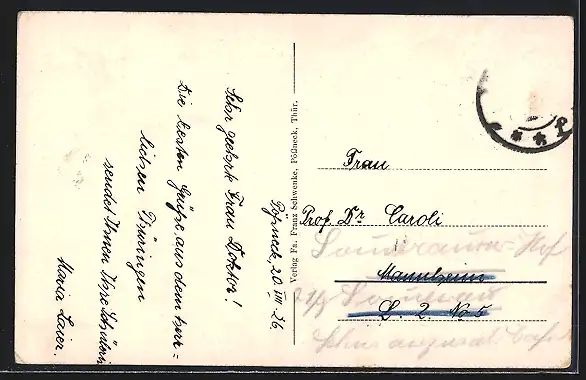 Pößneck, 20. VIII 26.
Sehr geehrte Frau Doktor!
Die besten Grüße aus dem herr=
lichen Thüringen
sendet Ihnen Ihre Schülerin
Maria Laier.
Verlag Fa. Franz Schwenke, Pößneck, Thür.
Frau
Prof. Dr. Caroli
Mannheim
L. 2 No 5